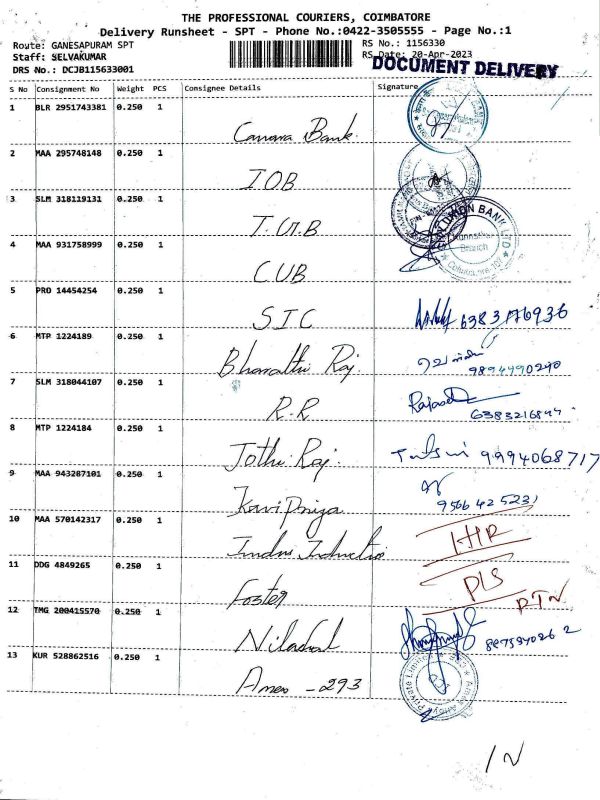 THE PROFESSIONAL COURIERS, COIMBATORE
Delivery Runsheet - SPT - Phone No.:0422-3505555 - Page No.:1
Route: GANESAPURAM SPT
RS No.: 1156330
Staff: SELVAKUMAR
RS Date: 20-Apr-2023
DOCUMENT DELIVERY
DRS No.: DCJB115633001
S No Consignment No Weight PCS Consignee Details Signature
1 BLR 2951743381 0.250 1
Canara Bank
2 MAA 295748148 0.250 1
IOB
3 SLM 318119131 0.250 1
T.U.B
UNION BANK LTD
Branch
4 MAA 931758999 0.250 1
CUB
5 PRO 14454254 0.250 1
SIC
6 MTP 1224189 0.250 1
Bharathi Raj
9894990240
7 SLM 318044107 0.250 1
R.R
8 MTP 1224184 0.250 1
Jothi Raj.
Tulsi 9994068717
9 MAA 943287101 0.250 1
Kavi Priya
9566425231
10 MAA 570142317 0.250 1
Indus
11 DDG 4849265 0.250 1
Foster
PLS
12 TMG 200415570 0.250 1
13 KUR 528862516 0.250 1
Amex - 293